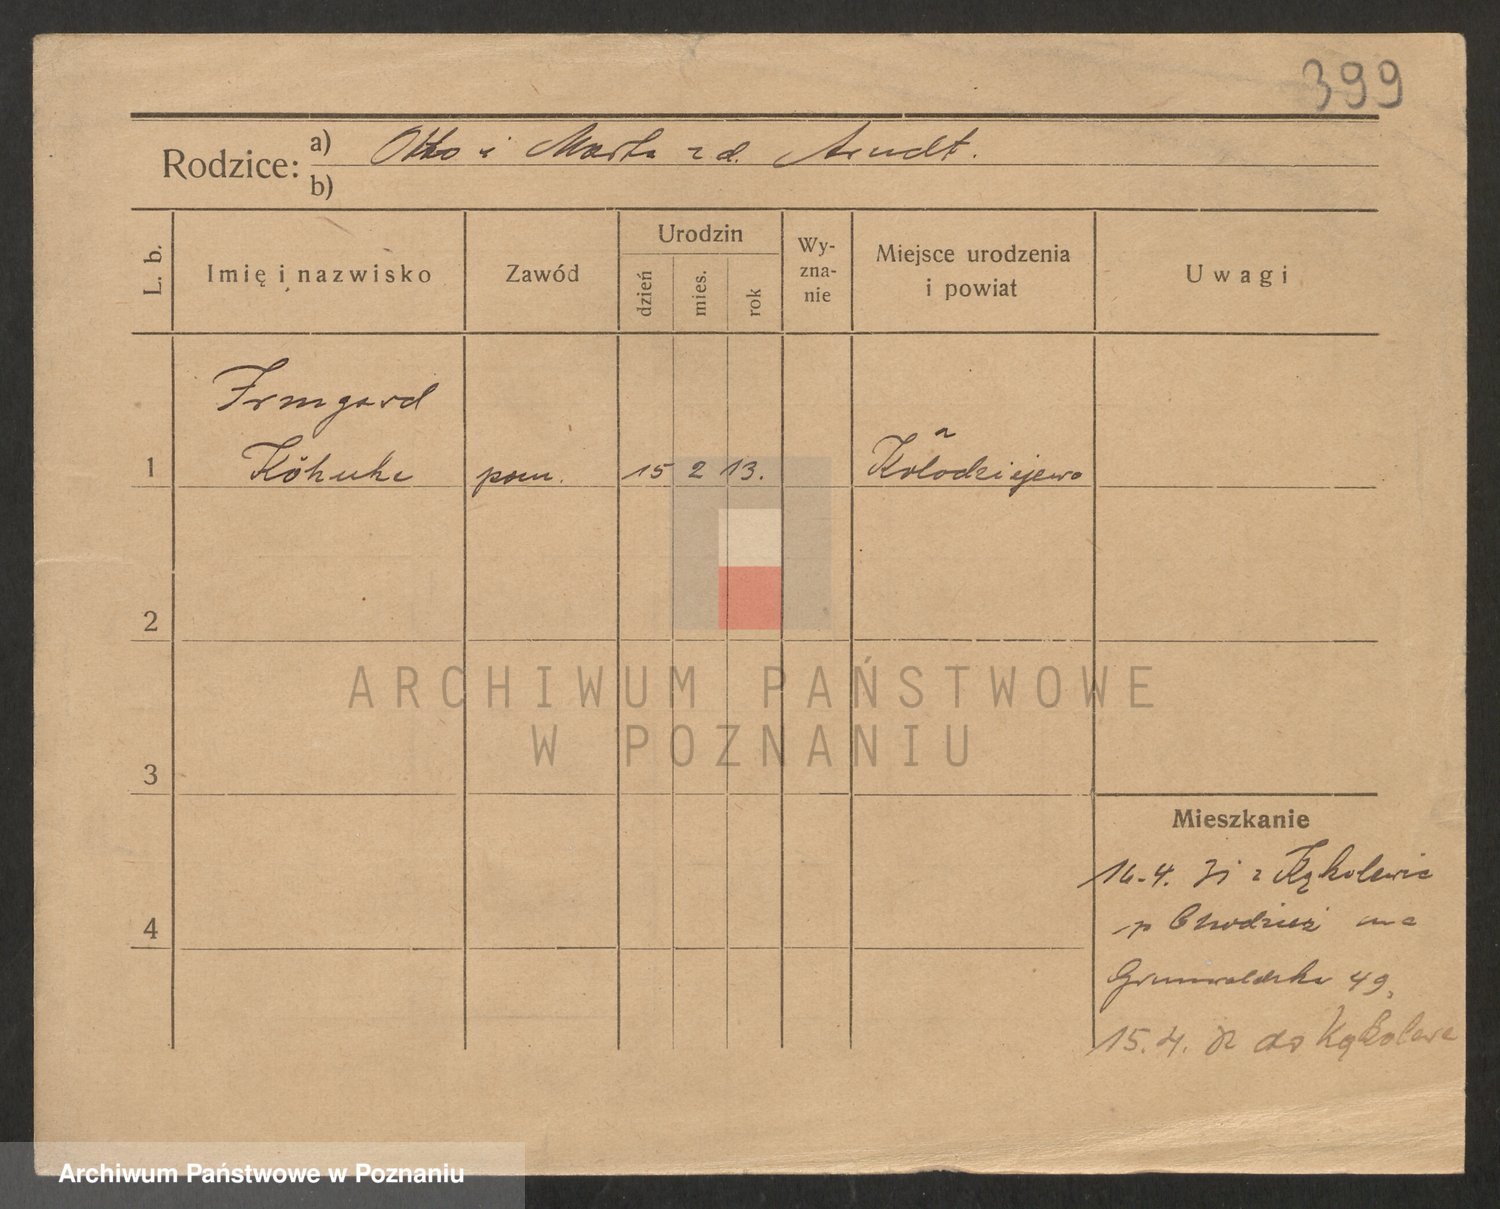 399
Rodzice: a) Otto i Marta z d. Arndt.
b)
L. b.
Imię i nazwisko
Zawód
Urodzin
dzień
mies.
rok
Wy-
zna-
nie
Miejsce urodzenia
i powiat
Uwagi
Irmgard
1 Köhnke pom. 15 2 13. Kołodziejewo
2
ARCHIWUM PAŃSTWOWE
W POZNANIU
3
Mieszkanie
z Kąkolewic
4
p Chodzież na
Grunwaldzka 49,
15.4. do Kąkolewa
Archiwum Państwowe w Poznaniu